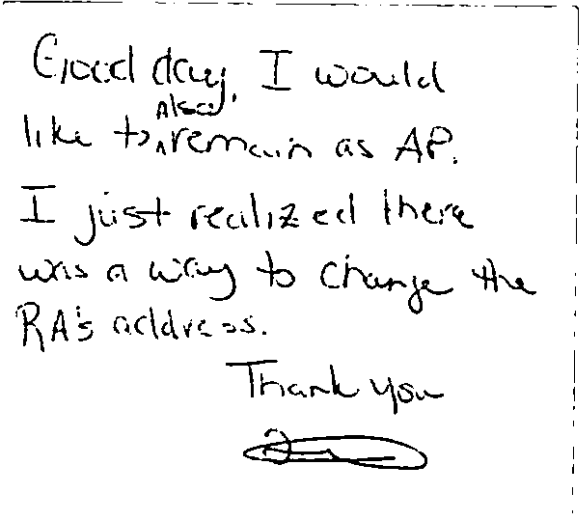 Good day, I would
like to also remain as AP.
I just realized there
was a way to change the
RA's address.
Thank you